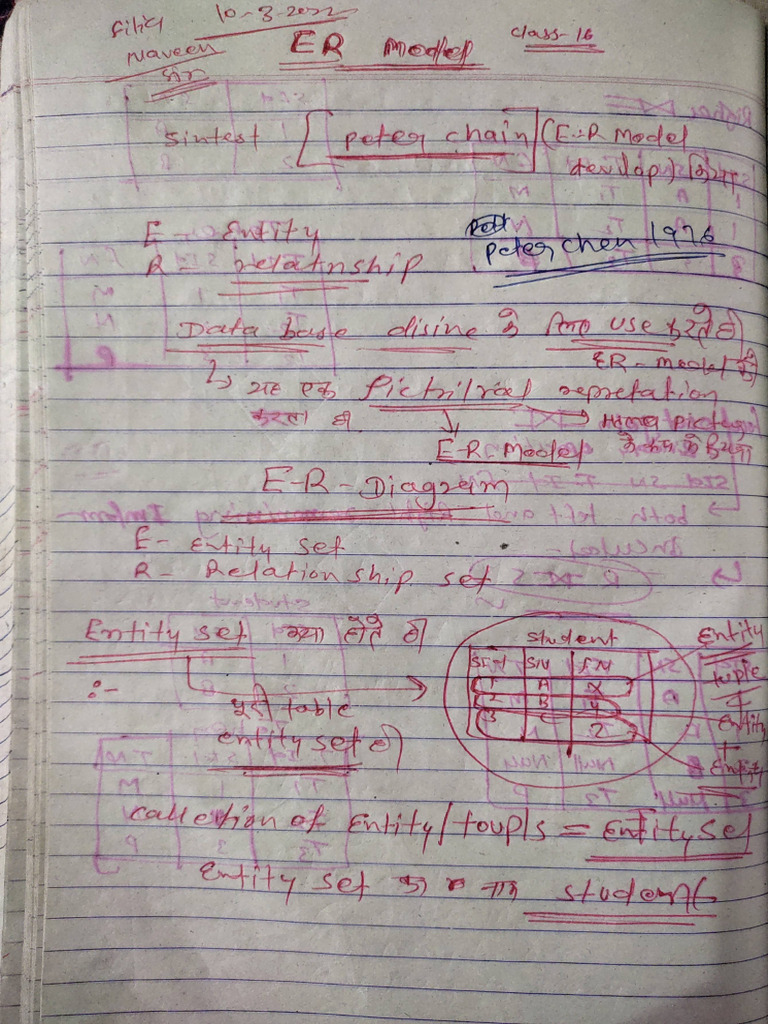 10-3-2022
Naveen
सर
ER Model
class-16
sintest [peter chain] (E-R Model
devlap) किया
E - Entity
R - relatnship
Peter chen 1976
Data base disine के लिए use करते है
ER-model को
↳ यह एक Pictrilral repretation
करता है
E-R-Model
E-R-Diagram
E- entity set
R- Relation ship set
Entity set क्या होते है
:-
पूरी table
entity set है
student
SID SN FN
1 A X
2 B Y
3 C Z
Entity
tuple
Entity
Entity
callection of Entity/toupls = Entity Set
Entity set का नाम student